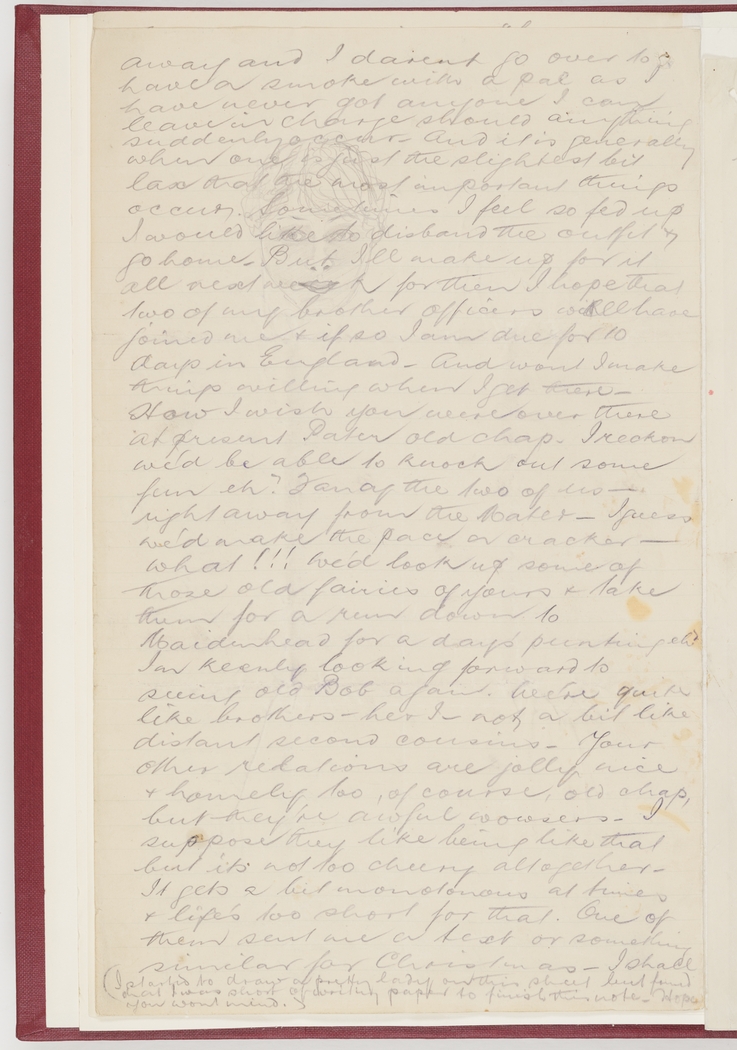 away and I darent go over to
have a smoke with a pal as I
have never got anyone I can
leave in charge should anything
suddenly occur - And it is generally
when one is just the slightest bit
lax that the most important things
occur. Sometimes I feel so fed up
I would like to disband the outfit &
go home - But I'll make up for it
all next week for then I hope that
two of my brother officers will have
joined me & if so I am due for 10
days in England - And wont I make
things willing when I get there -
How I wish you were over there
at present Pater old chap - I reckon
we'd be able to knock out some
fun eh? Fancy the two of us -
right away from the Mater - I guess
we'd make the pace a cracker -
what!!! We'd look up some of
those old fairies of yours & take
them for a run down to
Maidenhead for a days punting eh?
I'm keenly looking forward to
seeing old Bob again. We're quite
like brothers - he & I - not a bit like
distant second cousins - Your
other relations are jolly nice
& homely too, of course, old chap,
but they're awful wowsers - I
suppose they like being like that
but its not too cheery altogether -
It gets a bit monotonous at times
& life's too short for that. One of
them sent me a text or something
similar for Christmas - I shall
(I started to draw a pretty lady on this sheet but found
that I was short of writing paper to finish this note - Hope
you wont mind.)